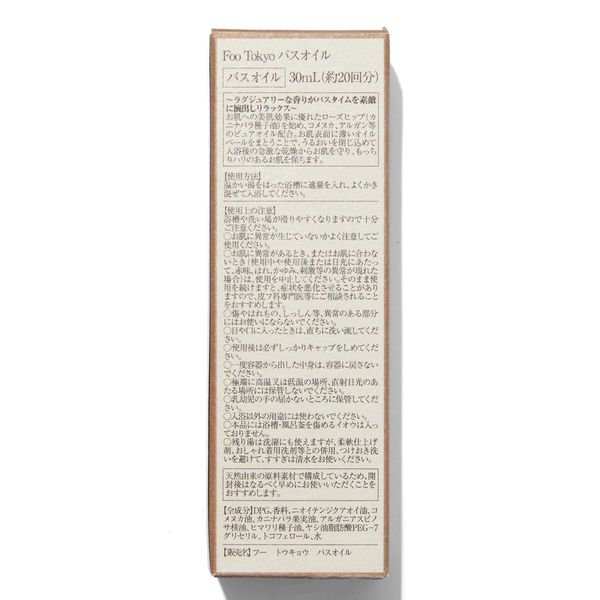 Foo Tokyo バスオイル
バスオイル 30mL（約20回分）
〜ラグジュアリーな香りがバスタイムを素敵
に演出しリラックス〜
お肌への美肌効果に優れたローズヒップ（カ
ニナバラ種子油）を始め、コメヌカ、アルガン等
のピュアオイル配合。お肌表面に薄いオイル
ベールをまとうことで、うるおいを閉じ込めて
入浴後の急激な乾燥からお肌を守り、もっち
りハリのあるお肌を保ちます。
【使用方法】
温かい湯をはった浴槽に適量を入れ、よくかき
混ぜて入浴してください。
【使用上の注意】
浴槽や洗い場が滑りやすくなりますので十分
ご注意ください。
○お肌に異常が生じていないかよく注意してご
使用ください。
○お肌に異常があるとき、またはお肌に合わな
いとき（使用中や使用後または日光にあたっ
て、赤味、はれ、かゆみ、刺激等の異常が現れた
場合）は、使用を中止してください。そのまま使
用を続けますと、症状を悪化させることがあり
ますので、皮フ科専門医等にご相談されること
をおすすめします。
○傷やはれもの、しっしん等、異常のある部分
にはお使いにならないでください。
○目や口に入ったときは、直ちに洗い流してくだ
さい。
○使用後は必ずしっかりキャップをしめてくだ
さい。
○一度容器から出した中身は、容器に戻さない
でください。
○極端に高温又は低温の場所、直射日光のあ
たる場所には保管しないでください。
○乳幼児の手の届かないところに保管してくだ
さい。
○入浴以外の用途には使わないでください。
○本品には浴槽・風呂釜を傷めるイオウは入っ
ておりません。
○残り湯は洗濯にも使えますが、柔軟仕上げ
剤、おしゃれ着用洗剤等との併用、つけおき洗
いを避けて、すすぎは清水をお使いください。
天然由来の原料素材で構成しているため、開
封後はなるべく早めにお使いいただくことを
おすすめします。
【全成分】DPG、香料、ニオイテンジクアオイ油、コ
メヌカ油、カニナバラ果実油、アルガニアスピノ
サ核油、ヒマワリ種子油、ヤシ油脂肪酸PEG-7
グリセリル、トコフェロール、水
【販売名】フー トウキョウ バスオイル